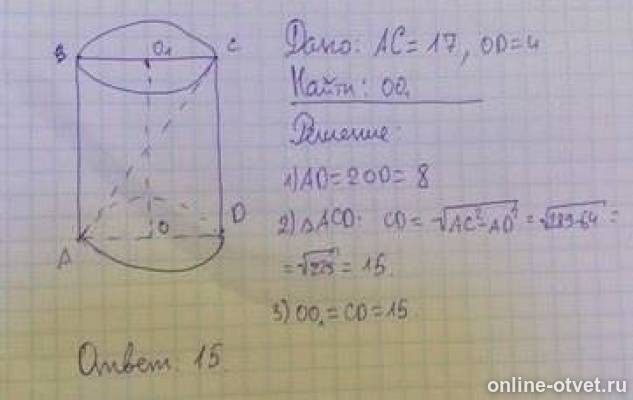 B O₁ C
A O D
Дано: AC = 17, OD = 4
Найти: OO₁
Решение:
1) AD = 2OD = 8
2) △ACD: CD = √AC² - AD² = √289-64 =
= √225 = 15.
3) OO₁ = CD = 15.
Ответ: 15.
online-otvet.ru